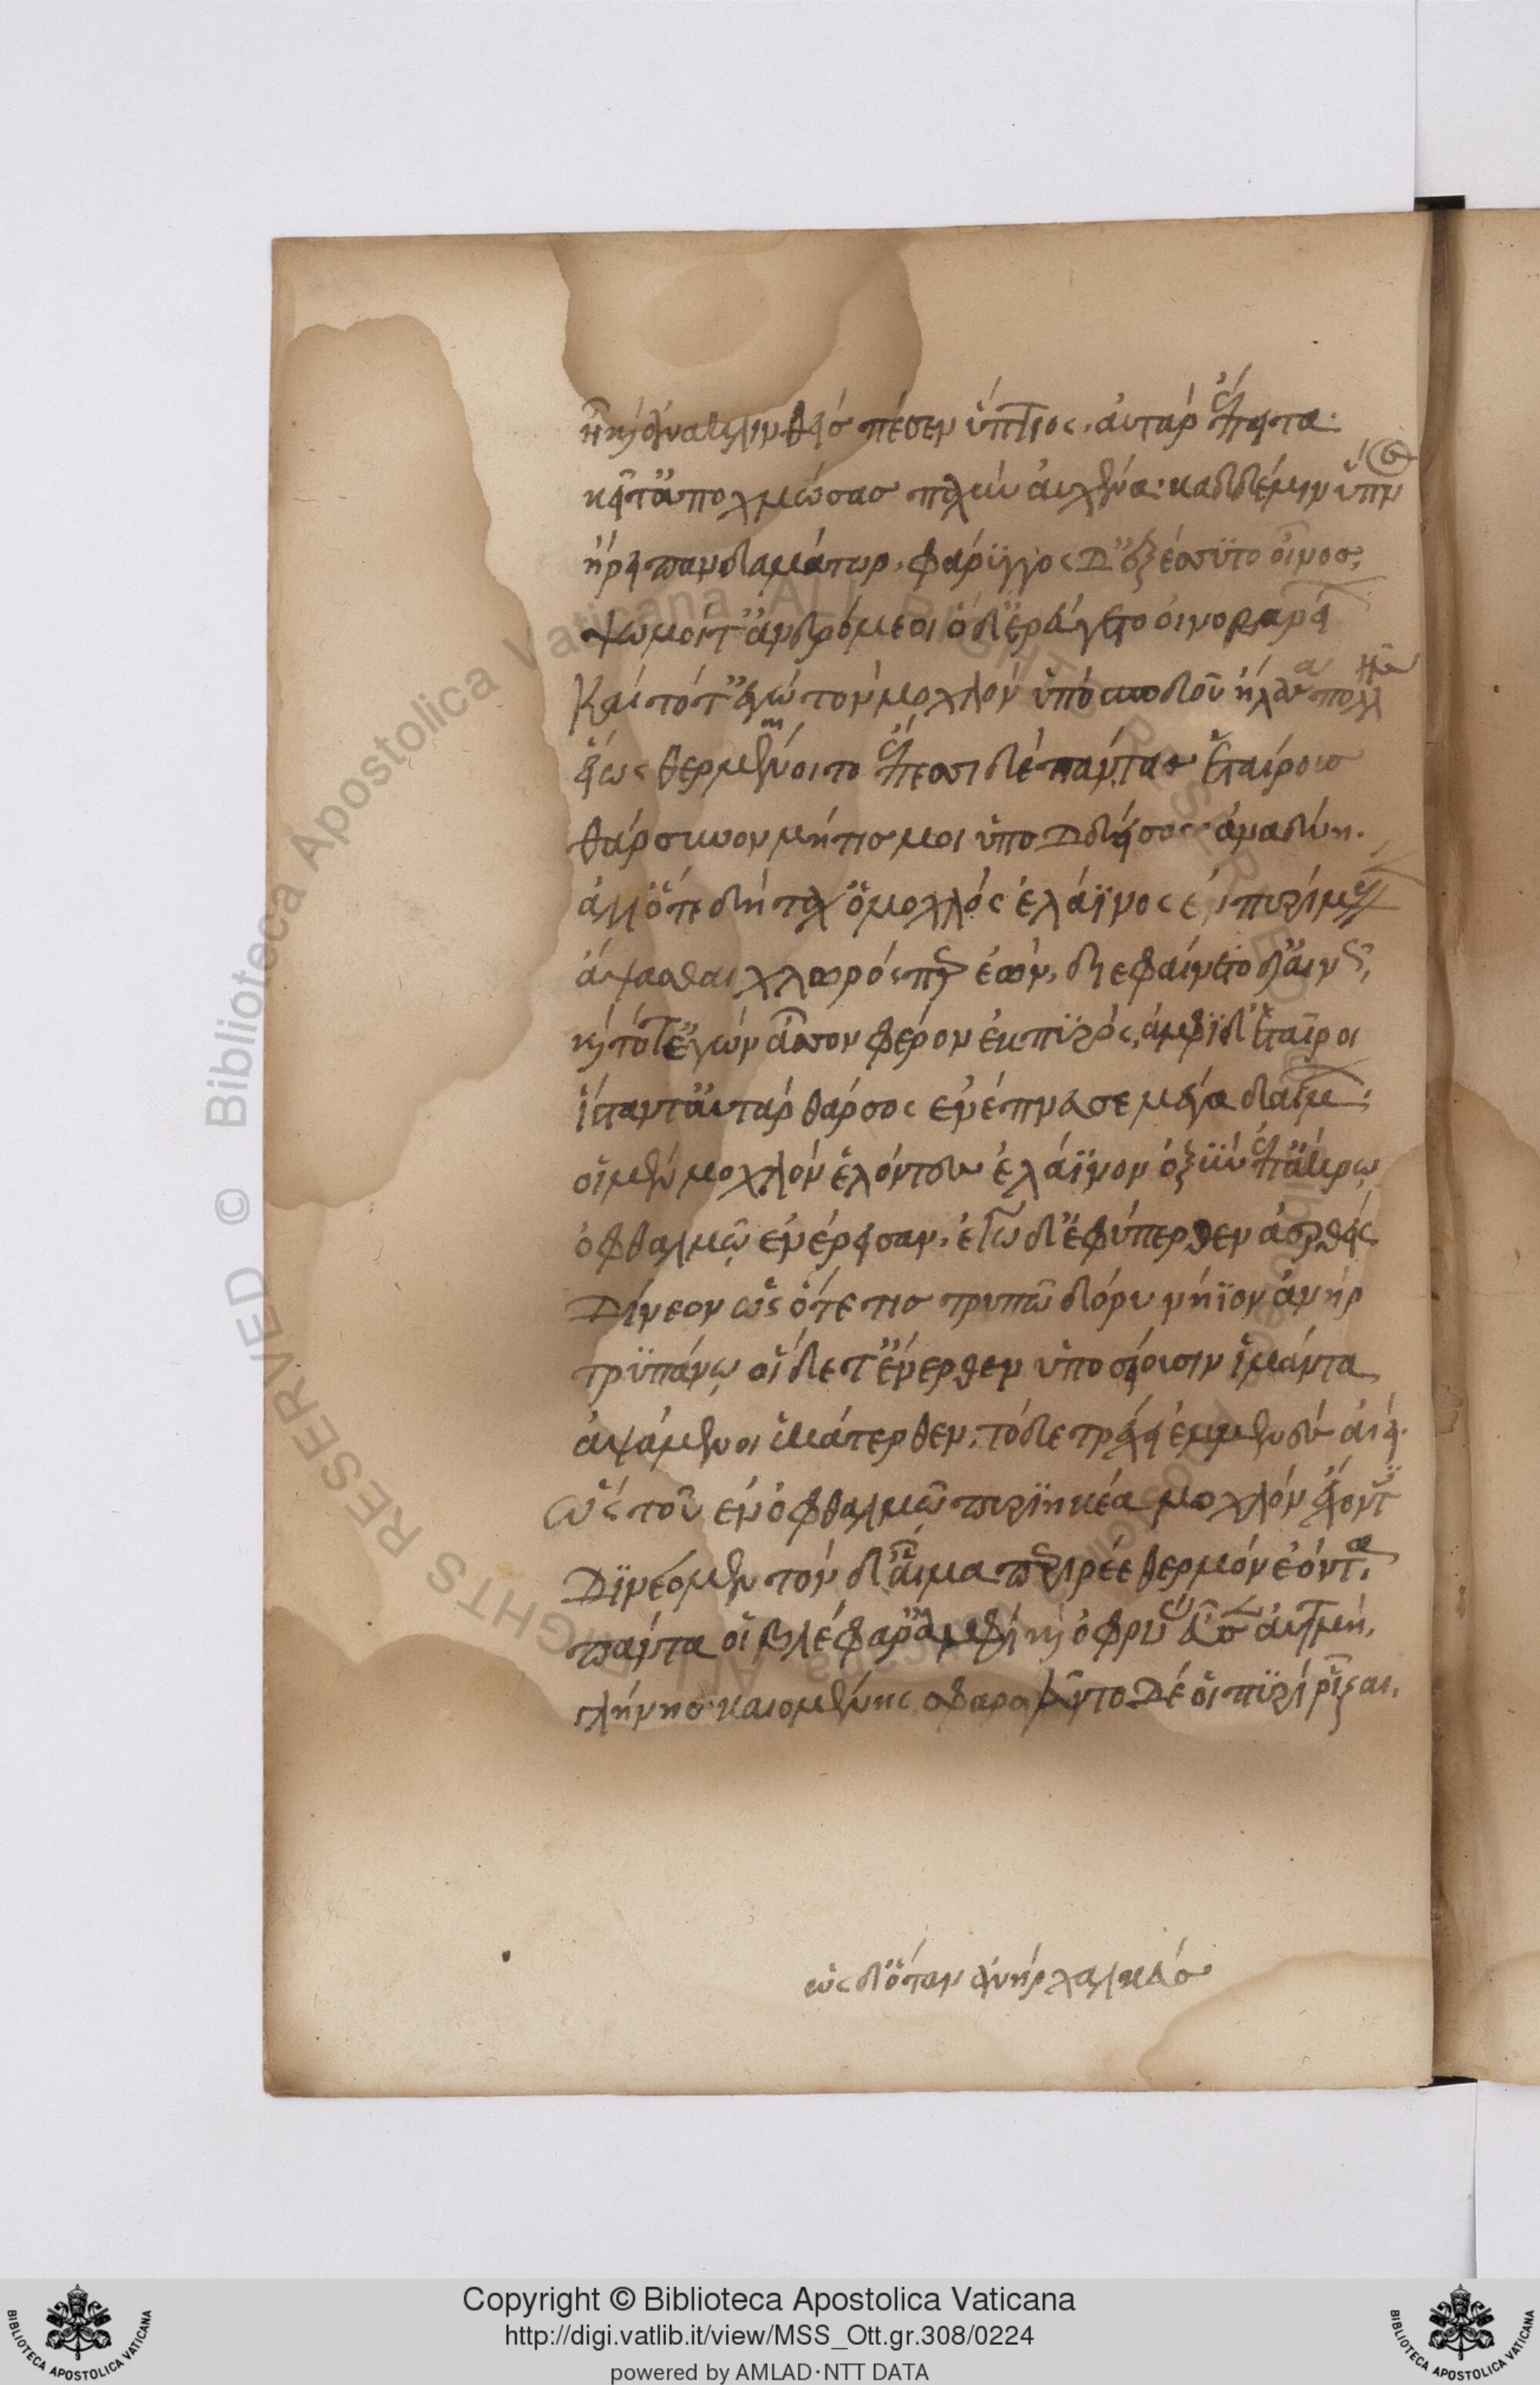 ἦ καὶ ἀνακλινθεὶς πέσεν ὕπτιος. αὐτὰρ ἔπειτα.
κεῖτ' ἀποχμώσας παχὺν αὐχένα· καδδέμιν ὕπνος
ἥρει πανδαμάτωρ. φάρυγγος δ' ἐξέσυτο οἶνος,
ψωμοίτ' ἀνδρόμεοι ὁ δ' ἐρεύγετο οἰνοβαρείων
Καὶ τότ' ἐγὼ τὸν μοχλὸν ὑπὸ σποδοῦ ἤλασα πολλῆς
εἵως θερμαίνοιτο ἔπεσι δὲ πάντας ἑταίρους
θάρσυνον μήτις μοι ὑποδδείσας ἀναδύη.
ἀλλ' ὅτε δὴ τάχ' ὁ μοχλὸς ἐλάϊνος ἐν πυρὶ μέλλεν
ἅψασθαι χλωρός περ ἐών. διεφαίνετο δ' αἰνῶς,
καὶ τότ' ἐγὼν ἆσσον φέρον ἐκ πυρός, ἀμφὶ δ' ἑταῖροι
ἵσταντ' αὐτὰρ θάρσος ἐνέπνευσε μέγα δαίμων.
οἱ μὲν μοχλὸν ἑλόντες ἐλάϊνον ὀξὺν ἐπ' ἄκρῳ
ὀφθαλμῷ ἐνέρεισαν. ἐγὼ δ' ἐφύπερθεν ἀερθείς
Δίνεον ὡς ὅτε τις τρυπῶ δόρυ νήϊον ἀνήρ
τρϋπάνῳ οἱ δέ τ' ἔνερθεν ὑποσείουσιν ἱμάντα
ἁψάμενοι ἑκάτερθεν. τὸ δὲ τρέχει ἐμμενὲς αἰεί.
ὣς τοῦ ἐν ὀφθαλμῷ πυριηκέα μοχλὸν ἑλόντες
Δϊνέομεν τὸν δ' αἷμα περίρεε θερμὸν ἐόντα.
πάντα οἱ βλέφαρ' ἀμφὶ καὶ ὀφρύας εὗσεν ἀϋτμή,
γλήνης καιομένης σφαραγεῦντο δέ οἱ πϋρὶ ῥίζαι.
ὡς δ' ὅταν ἀνὴρ χαλκεύς
Copyright © Biblioteca Apostolica Vaticana
http://digi.vatlib.it/view/MSS_Ott.gr.308/0224
powered by AMLAD·NTT DATA